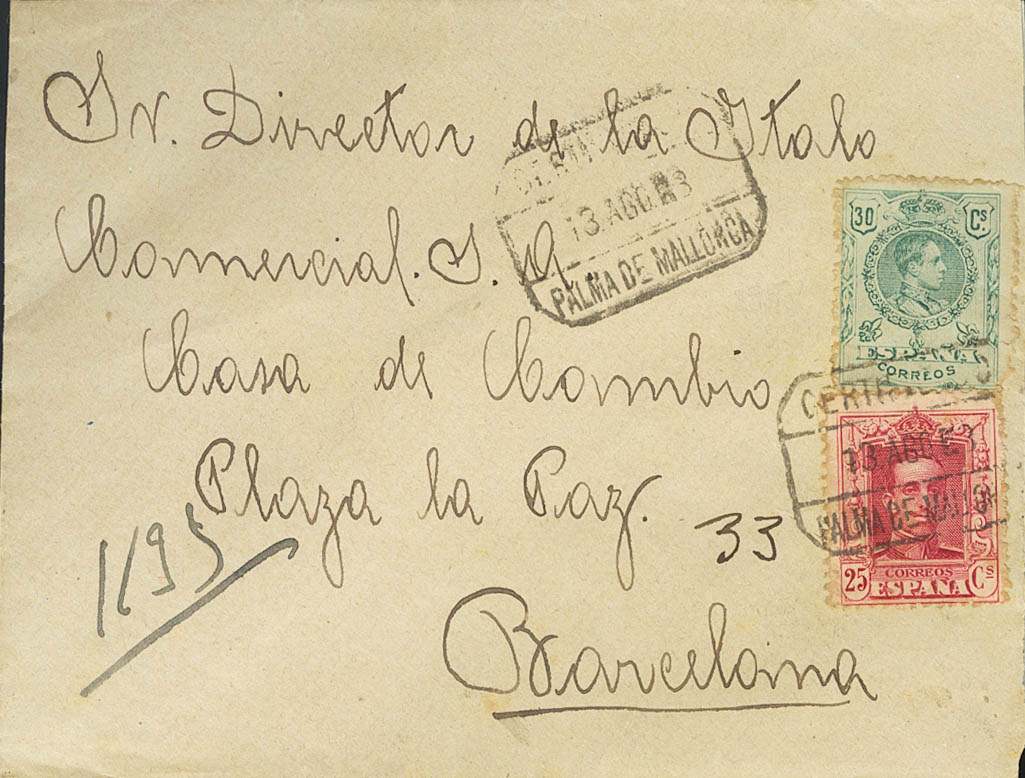 Sr. Director de la Italo
Comercial. S. A.
Casa de Cambio
Plaza la Paz.
33
Barcelona
1195
13 AGO 23
PALMA DE MALLORCA
30 Cs
ESPAÑA
CORREOS
13 AGO 23
PALMA DE MALLOR
25 Cs
CORREOS
ESPAÑA